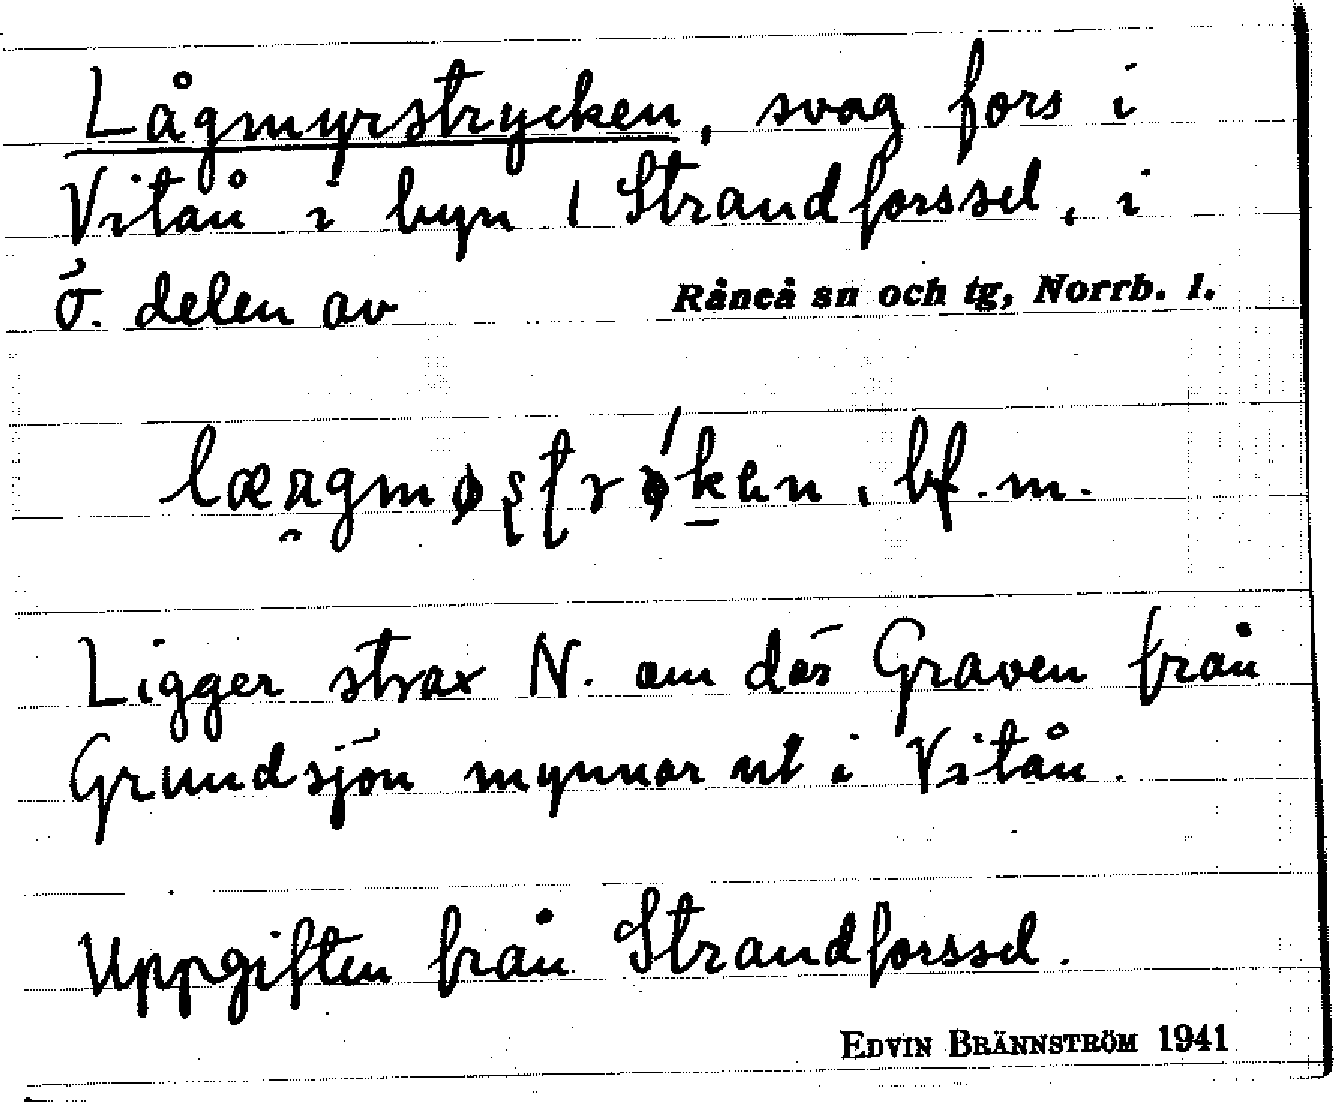 Lågmyrstrycken, svag fors i
Vitån i byn Strandforssel, i
ö. delen av Råneå sn och tg, Norrb. l.
bf. m.
Ligger strax N. om där Graven från
Grundsjön mynnar ut i Vitån.
Uppgiften från Strandforssel.
EDVIN BRÄNNSTRÖM 1941